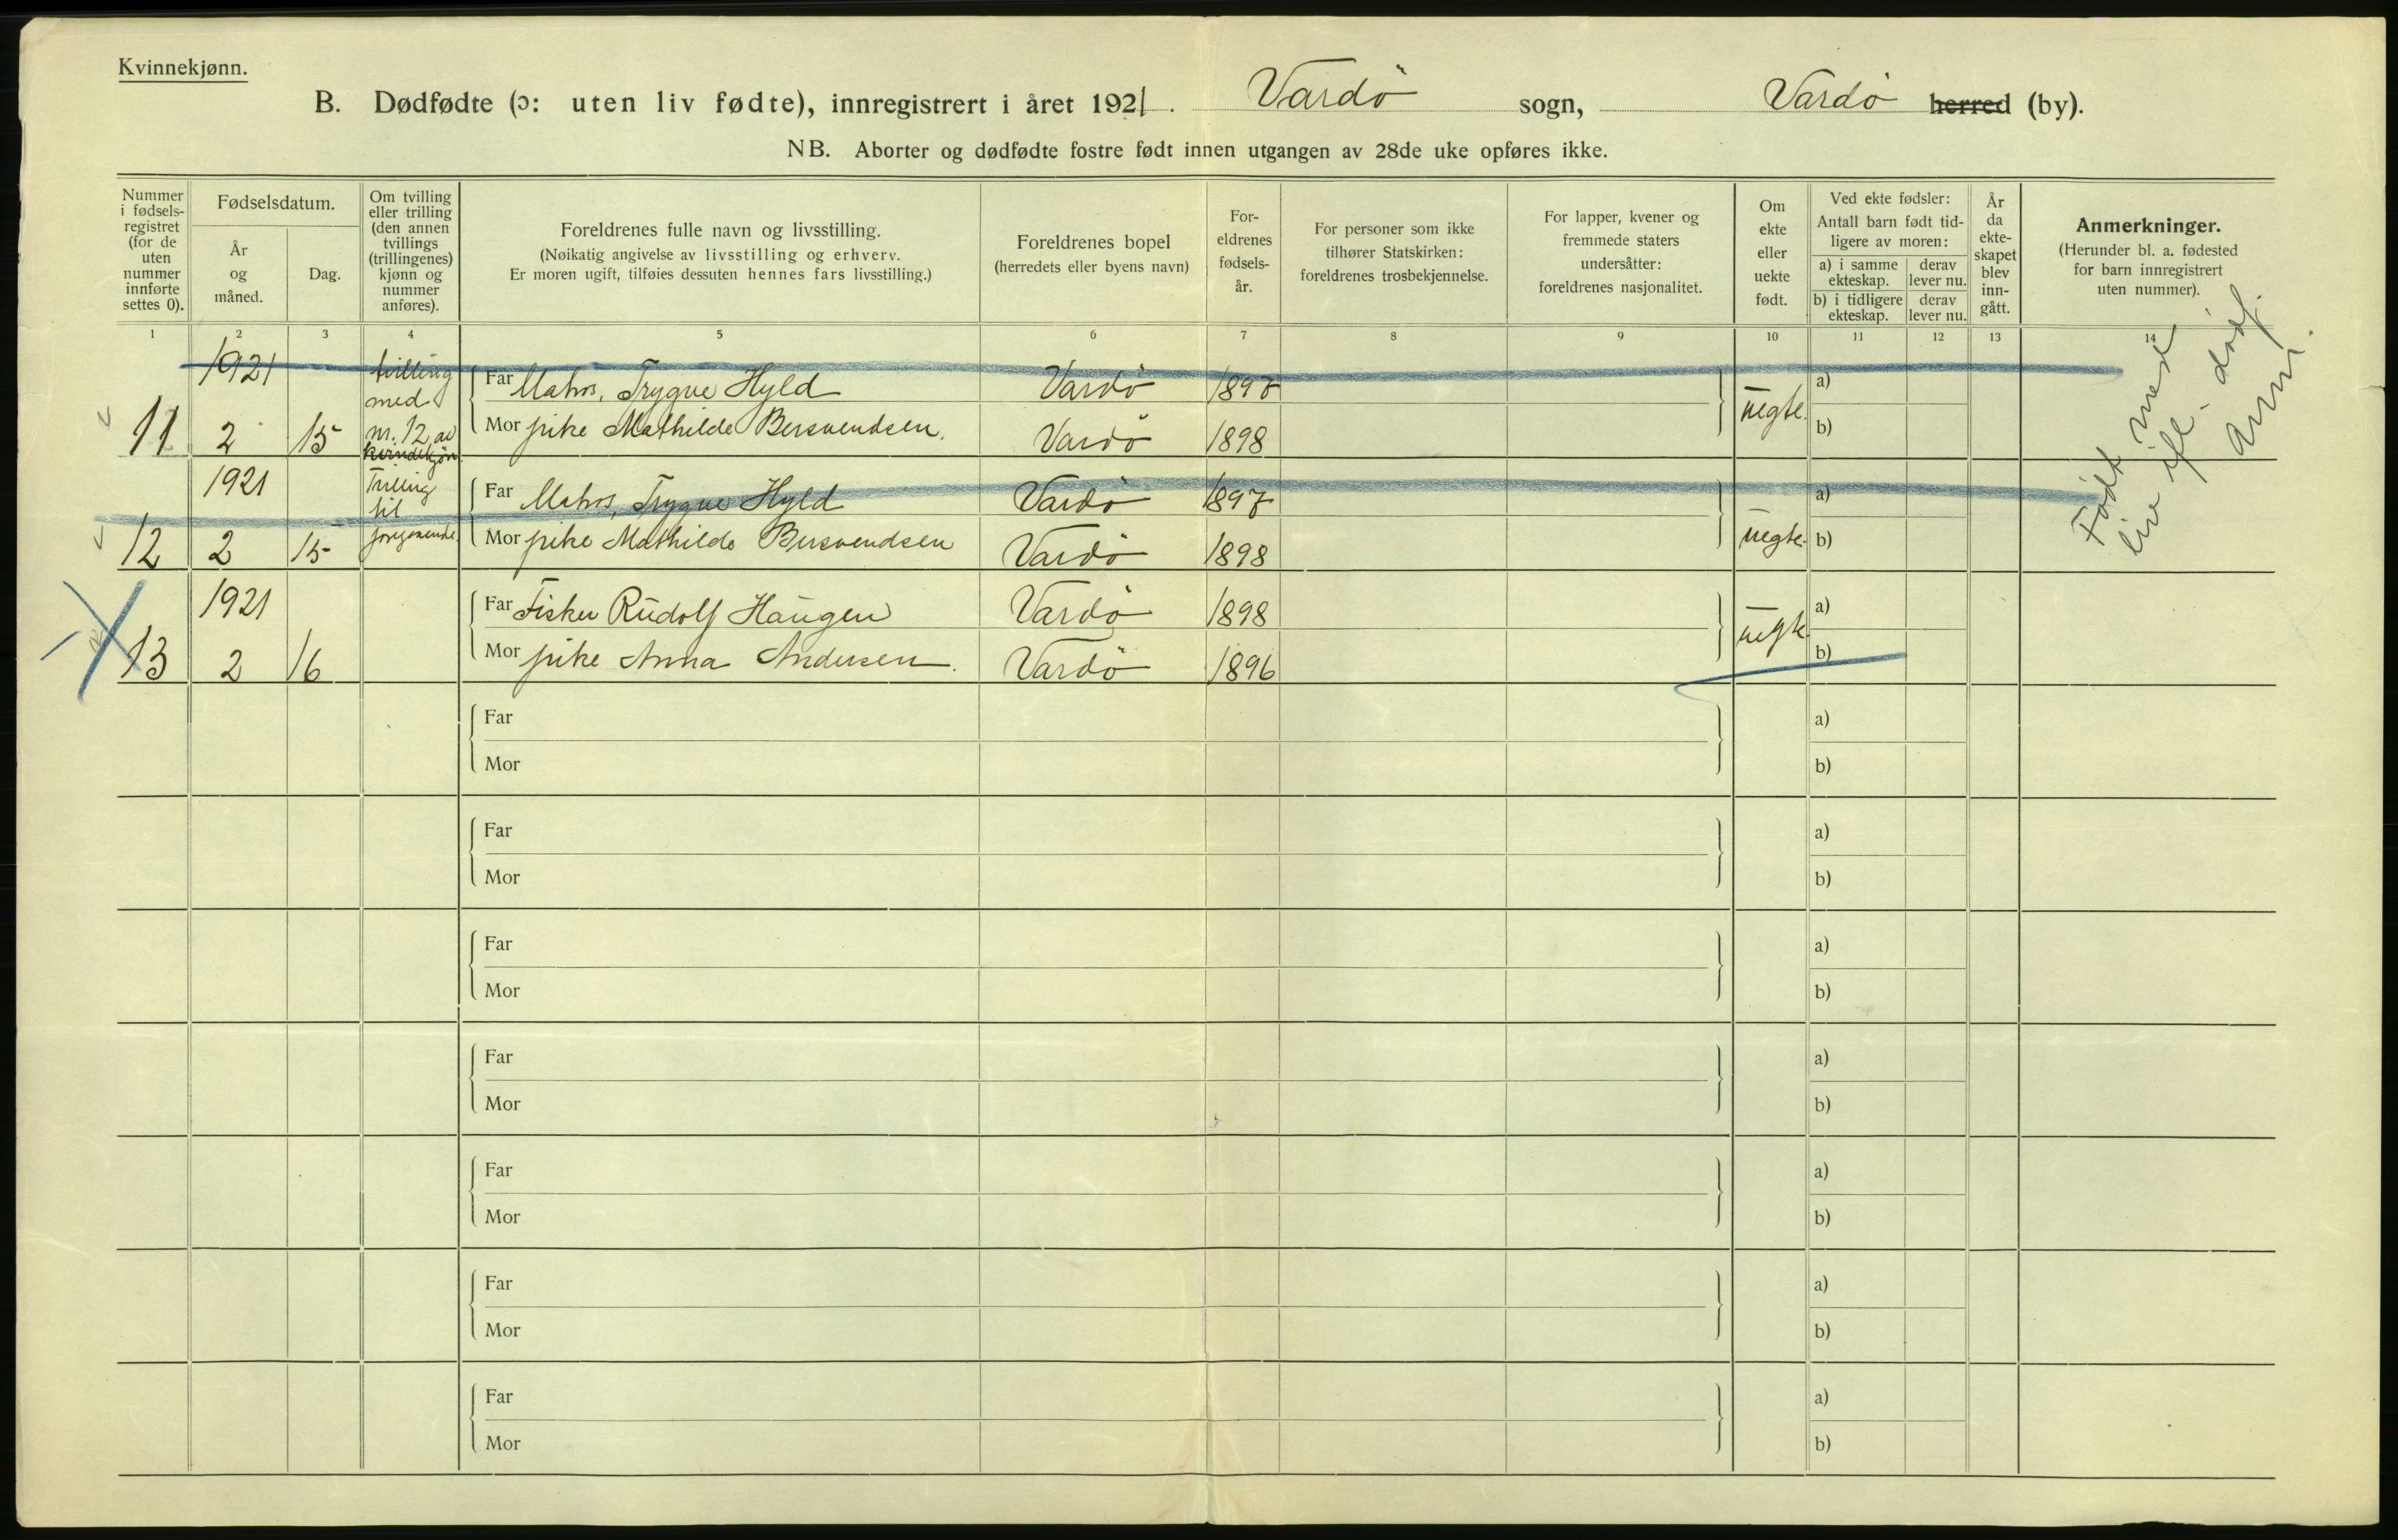 Kvinnekjønn.
B. Dødfødte (ɔ: uten liv fødte), innregistrert i året 1921. Vardö sogn, Vardö herred (by).
NB. Aborter og dødfødte fostre født innen utgangen av 28de uke opføres ikke.
Nummer i fødsels-registret (for de uten nummer innførte settes 0).
Fødselsdatum.
År og måned.
Dag.
Om tvilling eller trilling (den annen tvillings (trillingenes) kjønn og nummer anføres).
Foreldrenes fulle navn og livsstilling.
(Nøikatig angivelse av livsstilling og erhverv.
Er moren ugift, tilføies dessuten hennes fars livsstilling.)
Foreldrenes bopel
(herredets eller byens navn)
For-eldrenes fødsels-år.
For personer som ikke tilhører Statskirken: foreldrenes trosbekjennelse.
For lapper, kvener og fremmede staters undersåtter: foreldrenes nasjonalitet.
Om ekte eller uekte født.
Ved ekte fødsler:
Antall barn født tid-ligere av moren:
a) i samme ekteskap.
derav lever nu.
b) i tidligere ekteskap.
derav lever nu.
År da ekte-skapet blev inn-gått.
Anmerkninger.
(Herunder bl. a. fødested for barn innregistrert uten nummer).
1 2 3 4 5 6 7 8 9 10 11 12 13 14
1921 tvilling med Far Matros, Trygve Hyld Vardö 1897 uegte. a)
11 2 15 nr. 12 av kvindekjøn Mor pike Mathilde Bersvendsen. Vardö 1898 b)
1921 Tvilling til Far Matros, Trygve Hyld Vardö 1897 a)
12 2 15 foregaaende. Mor pike Mathilde Bersvendsen Vardö 1898 uegte. b)
Født med
live ifl. dødf.
anm.
1921 Far Fisker Rudolf Haugen Vardö 1898 uegte a)
13 2 16 Mor pike Anna Andersen. Vardö 1896 b)
Far a)
Mor b)
Far a)
Mor b)
Far a)
Mor b)
Far a)
Mor b)
Far a)
Mor b)
Far a)
Mor b)
Far a)
Mor b)